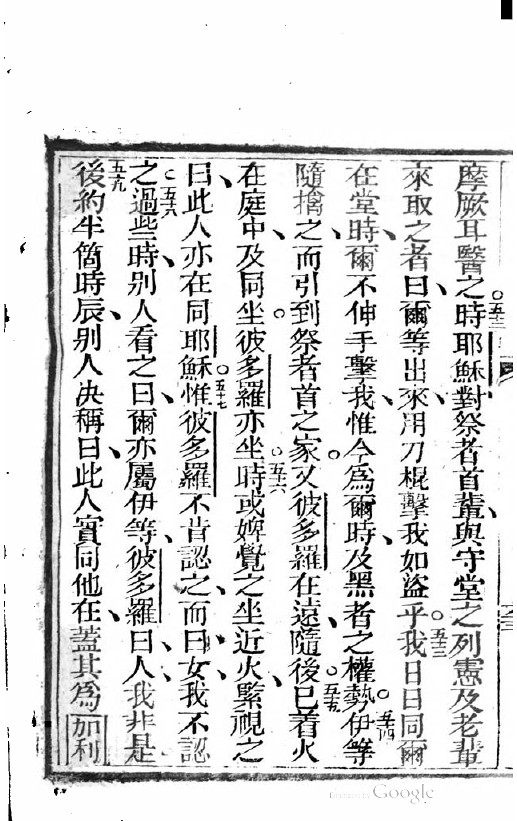 摩厥耳醫之○五二時耶穌對祭者首輩、與守堂之列憲及老輩
來取之者曰、爾等出來、用刀棍擊我如盜乎○五三我日日同爾
在堂時、爾不伸手擊我、惟今爲爾時、及黑者之權勢○五四伊等
隨擒之、而引到祭者首之家。又彼多羅在遠隨後○五五已着火
在庭中、及同坐。彼多羅亦坐時○五六或婢覺之坐近火、緊視之
曰、此人亦在同耶穌○五七惟彼多羅不肯認之、而曰、女、我不認
之○五八過些時、别人看之曰、爾亦屬伊等、彼多羅曰、人、我非是
五九後約半箇時辰、别人决稱曰、此人實同他在、蓋其爲加利
Digitized by Google